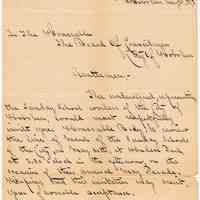 To The Honorable
The Board of Councilmen
City of Hoboken
Gentlemen:
The undersigned, representing
the Sunday School workers of the City of
Hoboken, would most respectfully
invite your Honorable Body to review
the line of the Sunday Schools
of the City, on May 26th, at Hudson Park
at 2.30 o'clock in the afternoon, on the
occasion of their annual May Parade.
Hoping that this invitation may meet
your favorable acceptance.